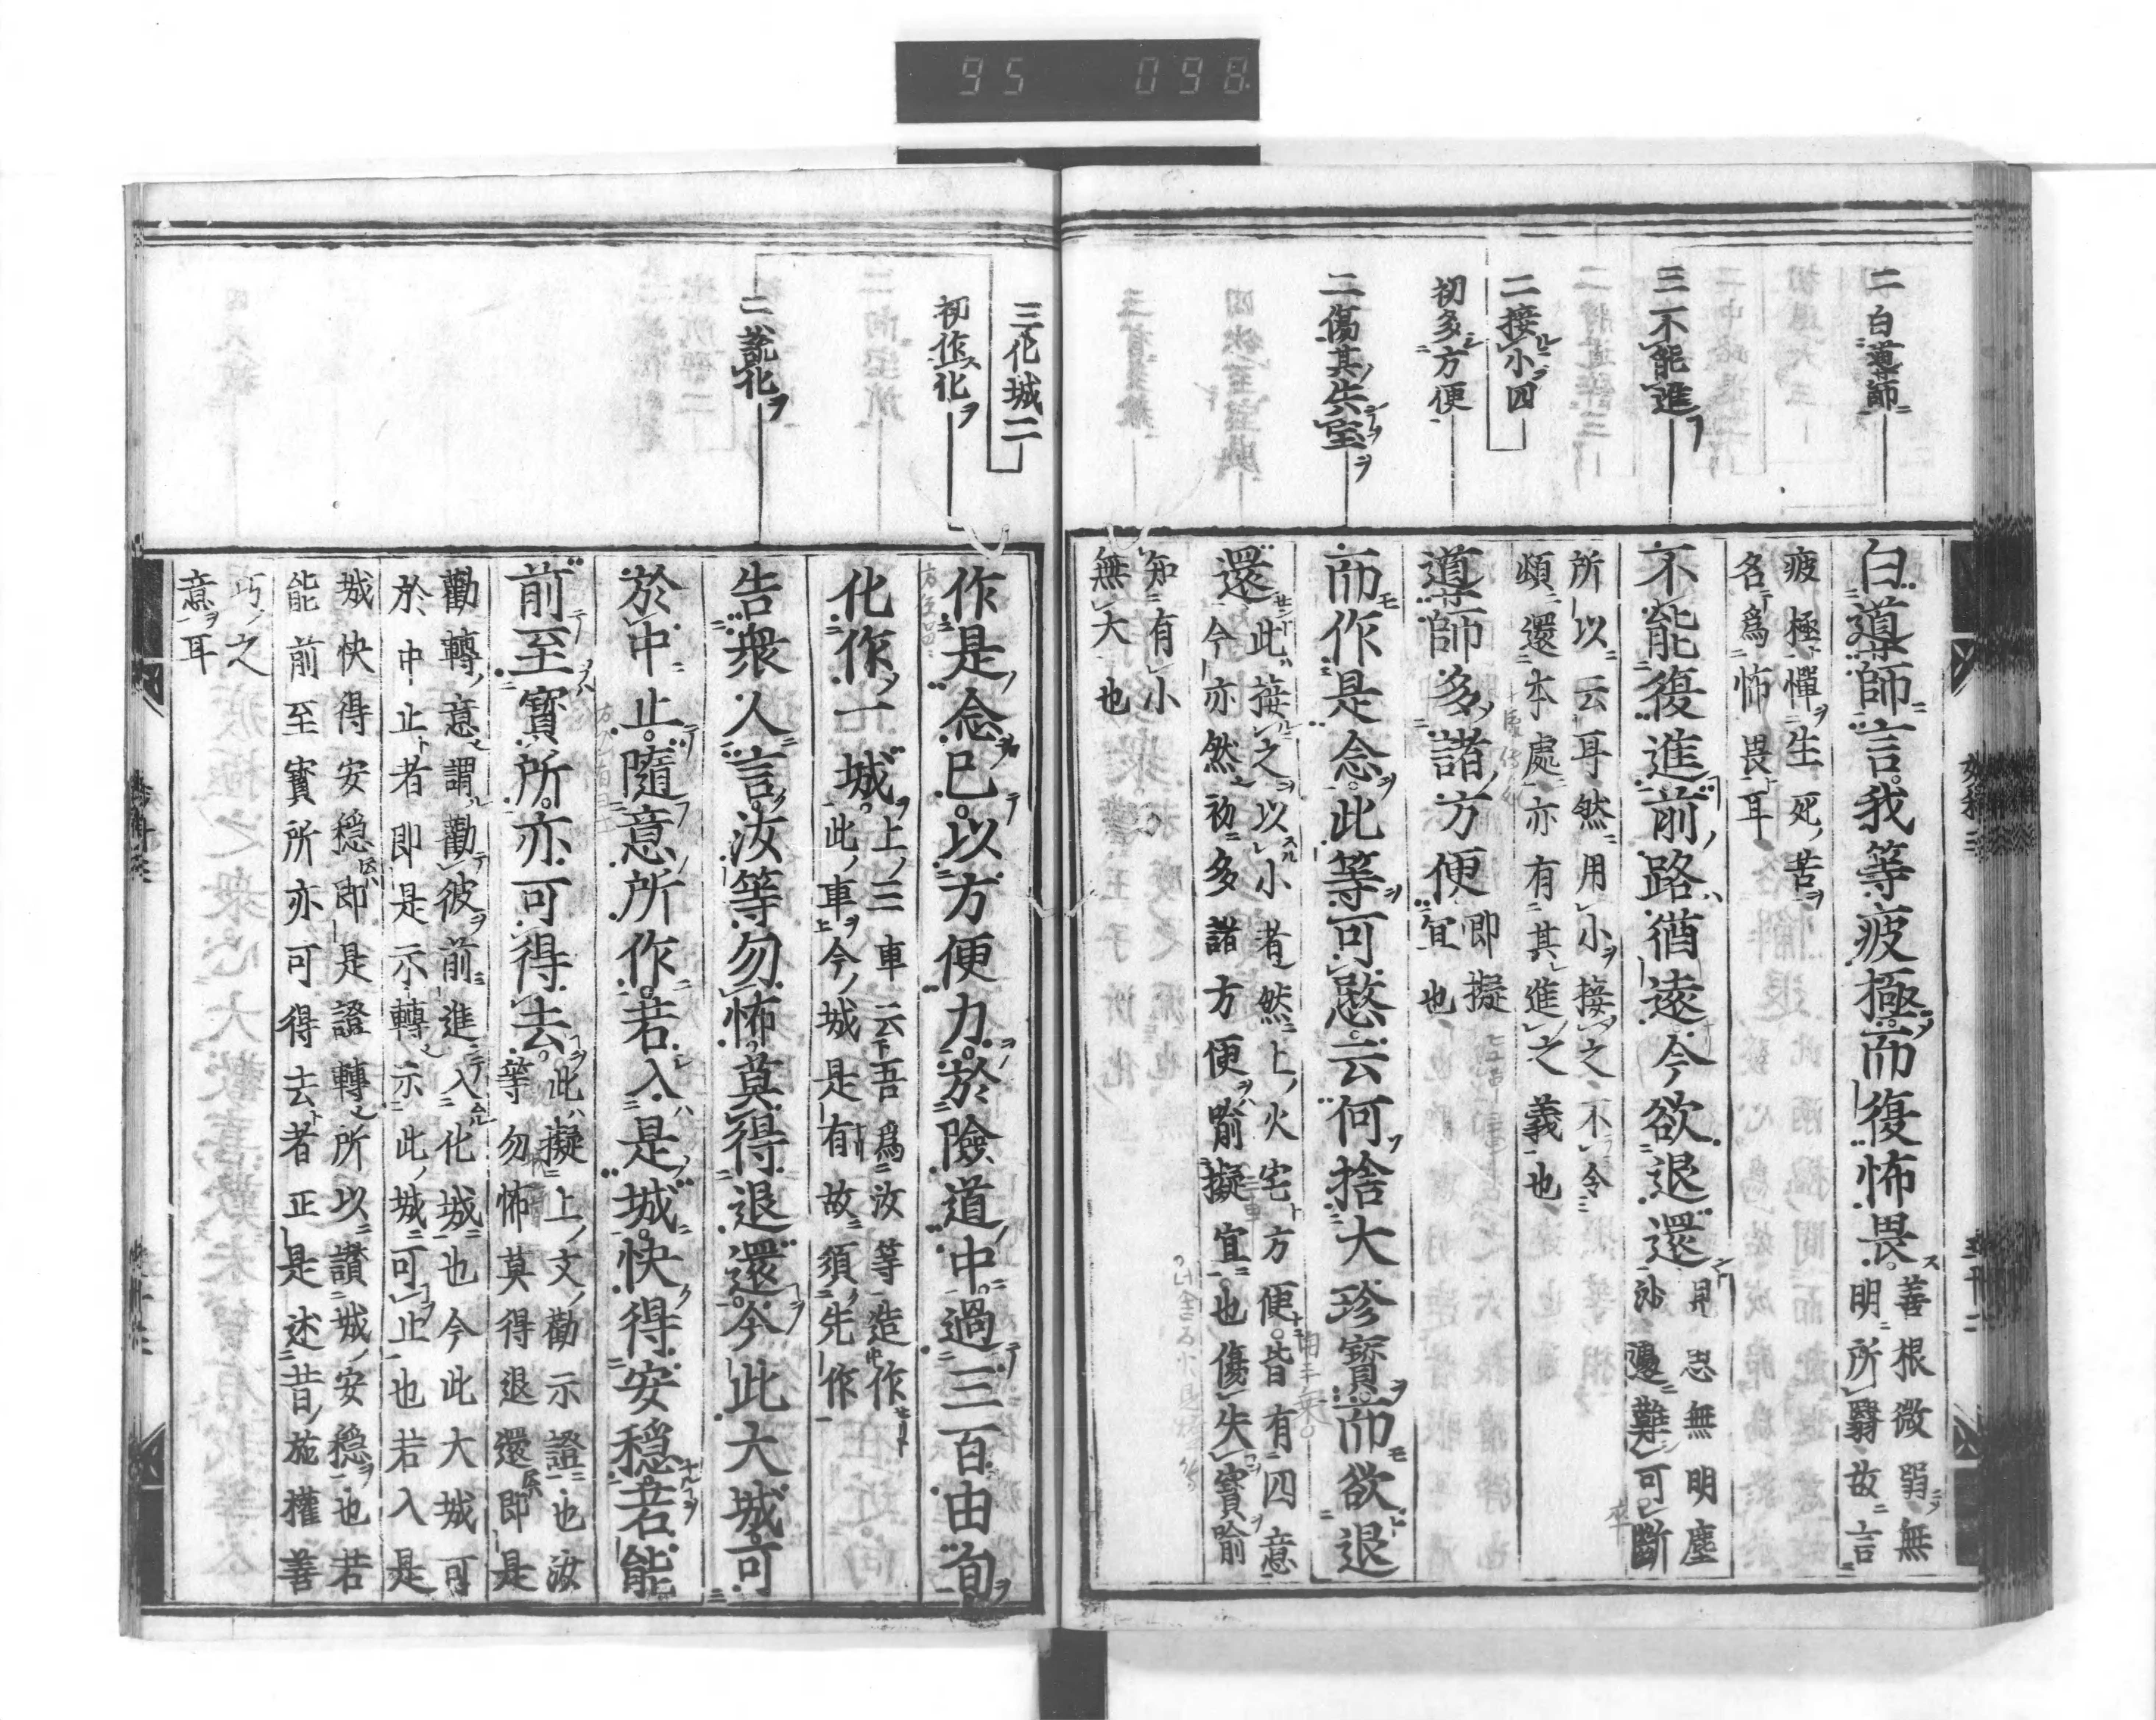 95 098
二白導師
三不能進
二接小四
初多方便
二傷其失宝
白導師言我等疲極而復怖畏
善根微弱無
明所翳故言
疲極憚生死苦
各爲怖畏耳
不能復進前路猶遠今欲退還
見思無明塵
沙邊難可斷
所以云耳然用小接之不令
頽還本處亦有其進之義也
導師多諸方便
即擬
宜也
而作是念此等可愍云何捨大珍寳而欲退
還
此接之以小者然上火宅方便皆有四意
今亦然初多諸方便喻擬宜也傷失寳喻
知有小
無大也
三化城二
初作化
二説化
作是念已以方便力於險道中過三百由旬
化作一城
上三車云吾爲汝等造作
此車今城是有故須先作
告衆人言汝等勿怖莫得退還今此大城可
於中止隨意所作若入是城快得安穏若能
前至寳所亦可得去
此擬上文勸示證也汝
等勿怖莫得退還即是
勸轉意謂勸彼前進入化城也今此大城可
於中止者即是示轉示此城可止也若入是
城快得安穏即是證轉所以讃城安穏也若
能前至寳所亦可得去者正是述昔施權善
巧之
意耳